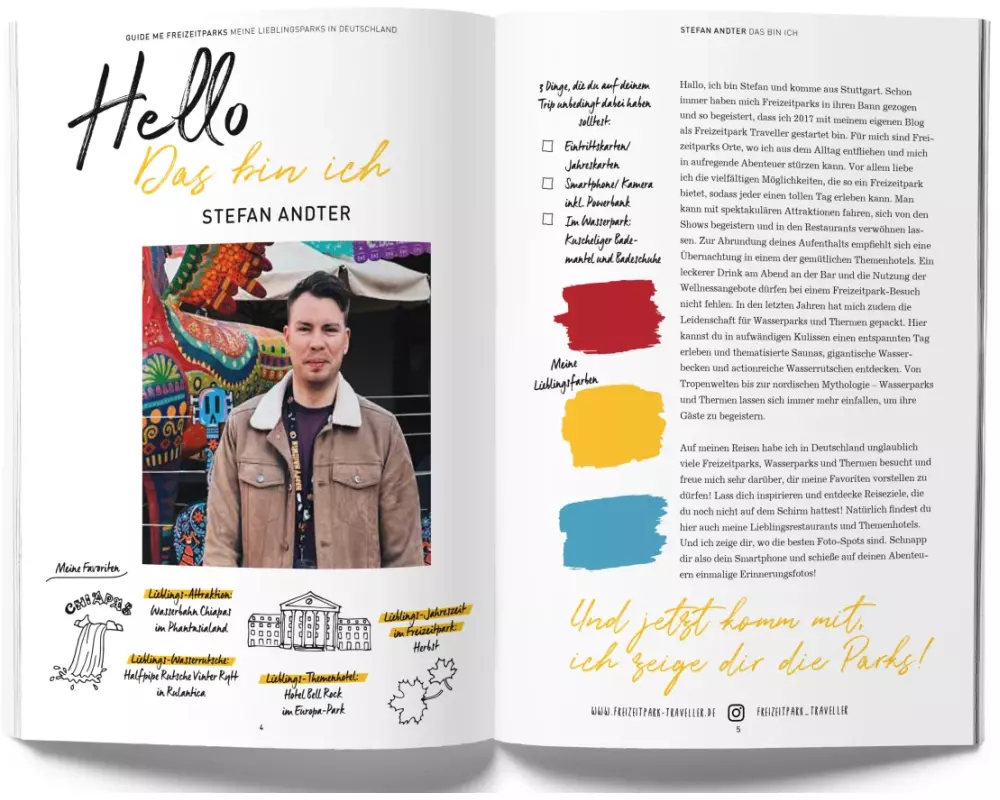 GUIDE ME FREIZEITPARKS MEINE LIEBLINGSPARKS IN DEUTSCHLAND
Hello
Das bin ich
STEFAN ANDTER
Meine Favoriten
CHIAPAS
Lieblings-Attraktion:
Wasserbahn Chiapas
im Phantasialand
Lieblings-Wasserrutsche:
Halfpipe Rutsche Vinter Rytt
in Rulantica
Lieblings-Themenhotel:
Hotel Bell Rock
im Europa-Park
Lieblings-Jahreszeit
im Freizeitpark:
Herbst
4
STEFAN ANDTER DAS BIN ICH
3 Dinge, die du auf deinem
Trip unbedingt dabei haben
solltest:
Eintrittskarten/
Jahreskarten
Smartphone/ Kamera
inkl. Powerbank
Im Wasserpark:
Kuscheliger Bade-
mantel und Badeschuhe
Meine
Lieblingsfarben
Hallo, ich bin Stefan und komme aus Stuttgart. Schon
immer haben mich Freizeitparks in ihren Bann gezogen
und so begeistert, dass ich 2017 mit meinem eigenen Blog
als Freizeitpark Traveller gestartet bin. Für mich sind Frei-
zeitparks Orte, wo ich aus dem Alltag entfliehen und mich
in aufregende Abenteuer stürzen kann. Vor allem liebe
ich die vielfältigen Möglichkeiten, die so ein Freizeitpark
bietet, sodass jeder einen tollen Tag erleben kann. Man
kann mit spektakulären Attraktionen fahren, sich von den
Shows begeistern und in den Restaurants verwöhnen las-
sen. Zur Abrundung deines Aufenthalts empfiehlt sich eine
Übernachtung in einem der gemütlichen Themenhotels. Ein
leckerer Drink am Abend an der Bar und die Nutzung der
Wellnessangebote dürfen bei einem Freizeitpark-Besuch
nicht fehlen. In den letzten Jahren hat mich zudem die
Leidenschaft für Wasserparks und Thermen gepackt. Hier
kannst du in aufwändigen Kulissen einen entspannten Tag
erleben und thematisierte Saunas, gigantische Wasser-
becken und actionreiche Wasserrutschen entdecken. Von
Tropenwelten bis zur nordischen Mythologie – Wasserparks
und Thermen lassen sich immer mehr einfallen, um ihre
Gäste zu begeistern.
Auf meinen Reisen habe ich in Deutschland unglaublich
viele Freizeitparks, Wasserparks und Thermen besucht und
freue mich sehr darüber, dir meine Favoriten vorstellen zu
dürfen! Lass dich inspirieren und entdecke Reiseziele, die
du noch nicht auf dem Schirm hattest! Natürlich findest du
hier auch meine Lieblingsrestaurants und Themenhotels.
Und ich zeige dir, wo die besten Foto-Spots sind. Schnapp
dir also dein Smartphone und schieße auf deinen Abenteu-
ern einmalige Erinnerungsfotos!
Und jetzt komm mit,
ich zeige dir die Parks!
WWW.FREIZEITPARK-TRAVELLER.DE
FREIZEITPARK_TRAVELLER
5